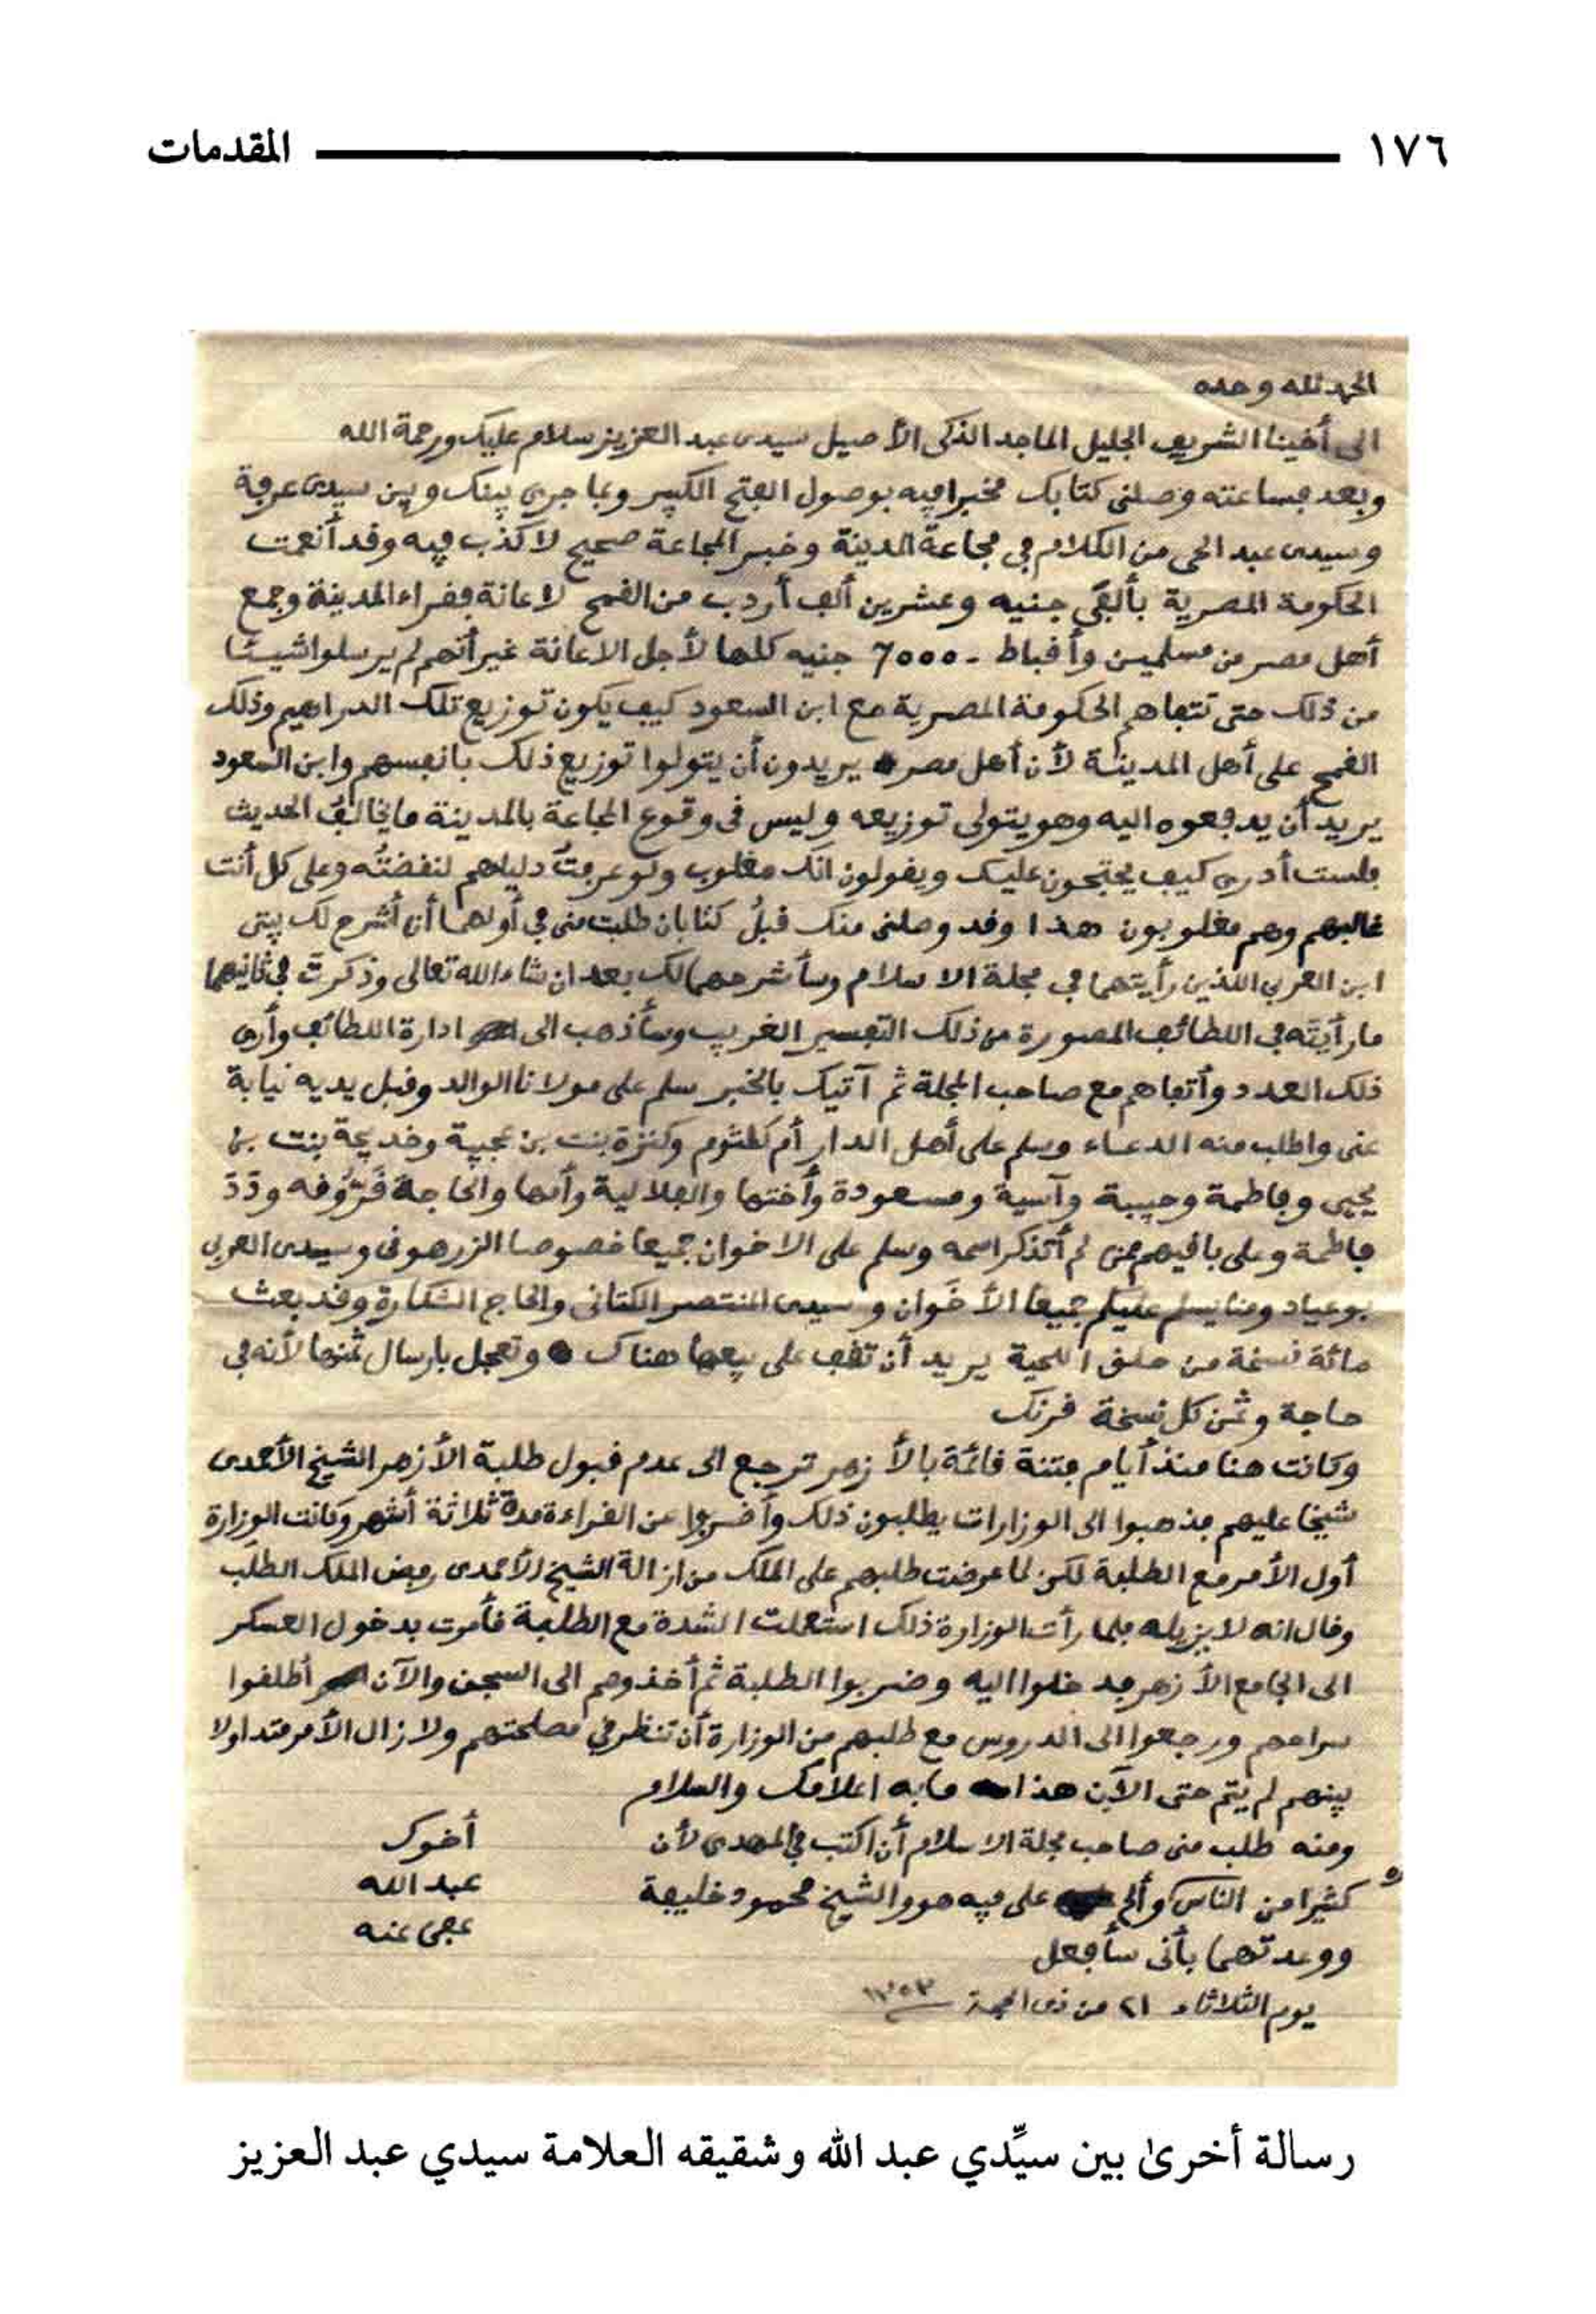 ١٧٦ المقدمات
الحمد لله وحده
الى أخينا الشريف الجليل الماجد الذكى الأصيل سيدى عبد العزيز سلام عليك ورحمة الله
وبعد فساعته وصلنى كتابك مخبرا فيه بوصول الفتح الكبير وبما جرى بينك وبين سيدى عرفة
وسيدى عبد الحى من الكلام فى مجاعة المدينة وخبر المجاعة صحيح لا كذب فيه وقد أنعمت
الحكومة المصرية بألفَي جنيه وعشرين ألف أردب من القمح لاعانة فقراء المدينة وجمع
أهل مصر من مسلمين وأقباط - 7000 جنيه كلها لأجل الاعانة غير أنهم لم يرسلوا شيئا
من ذلك حتى تتفاهم الحكومة المصرية مع ابن السعود كيف يكون توزيع تلك الدراهيم وذلك
القمح على أهل المدينة لأن أهل مصر يريدون أن يتولوا توزيع ذلك بانفسهم وابن السعود
يريد أن يدفعوه اليه وهو يتولى توزيعه وليس فى وقوع المجاعة بالمدينة ما يخالف الحديث
فلست أدرى كيف يحتجون عليك ويقولون انك مغلوب ولو عرفتُ دليلهم لنقضتُه وعلى كل أنت
غالبهم وهم مغلوبون هذا وقد وصلنى منك قبلُ كتابان طلبت منى فى أولهما أن أشرح لك بيتى
ابن العربى اللذين رأيتهما فى مجلة الاسلام وسأشرحهما لك بعد ان شاء الله تعالى وذكرتَ فى ثانيهما
ما رأيتَه فى اللطائف المصورة من ذلك التفسير الغريب وسأذهب الى ادارة اللطائف وأرى
ذلك العدد وأتفاهم مع صاحب المجلة ثم آتيك بالخبر سلم على مولانا الوالد وقبل يديه نيابة
عنى واطلب منه الدعاء وسلم على أهل الدار أم كلثوم وكنزة بنت بن عجيبة وخديجة بنت بن
يحيى وفاطمة وحبيبة وآسية ومسعودة وأختها والفلالية وأمها والحاجة ودَدَ
فاطمة وعلى باقيهم ممن لم أتذكر اسمه وسلم على الاخوان جميعا خصوصا الزرهونى وسيدى العربى
بوعياد ومنا يسلم عليكم جميعا الأخَوان وسيدى المنتصر الكتانى والحاج الشكارة وقد بعث
مائة نسخة من حلق اللحية يريد أن تقف على بيعها هناك وتعجل بارسال ثمنها لأنه فى
حاجة وثمن كل نسخة فرنك
وكانت هنا منذ أيام فتنة قائمة بالأزهر ترجع الى عدم قبول طلبة الأزهر الشيخ الأحمدى
شيخا عليهم فذهبوا الى الوزارات يطلبون ذلك وأضربوا عن القراءة مدة ثلاثة أشهر وكانت الوزارة
أول الأمر مع الطلبة لكن لما عرضت طلبهم على الملك من ازالة الشيخ الأحمدى رفض الملك الطلب
وقال انه لا يزيله فلما رأت الوزارة ذلك استعملت الشدة مع الطلبة فأمرت بدخول العسكر
الى الجامع الأزهر فدخلوا اليه وضربوا الطلبة ثم أخذوهم الى السجن والآن أطلقوا
سراحهم ورجعوا الى الدروس مع طلبهم من الوزارة أن تنظر فى مصلحتهم ولا زال الأمر متداولا
بينهم لم يتم حتى الآن هذا ما به اعلامك والسلام
ومنه طلب منى صاحب مجلة الاسلام أن اكتب فى المهدى لأن
كثيرا من الناس وألح على فيه هو والشيخ محمود خليفة
ووعدتهما بأنى سأفعل
أخوك
عبد الله
عفى عنه
يوم الثلاثاء ٢١ من ذى الحجة ١٣٥٣
رسالة أخرىٰ بين سيِّدي عبد الله وشقيقه العلامة سيدي عبد العزيز